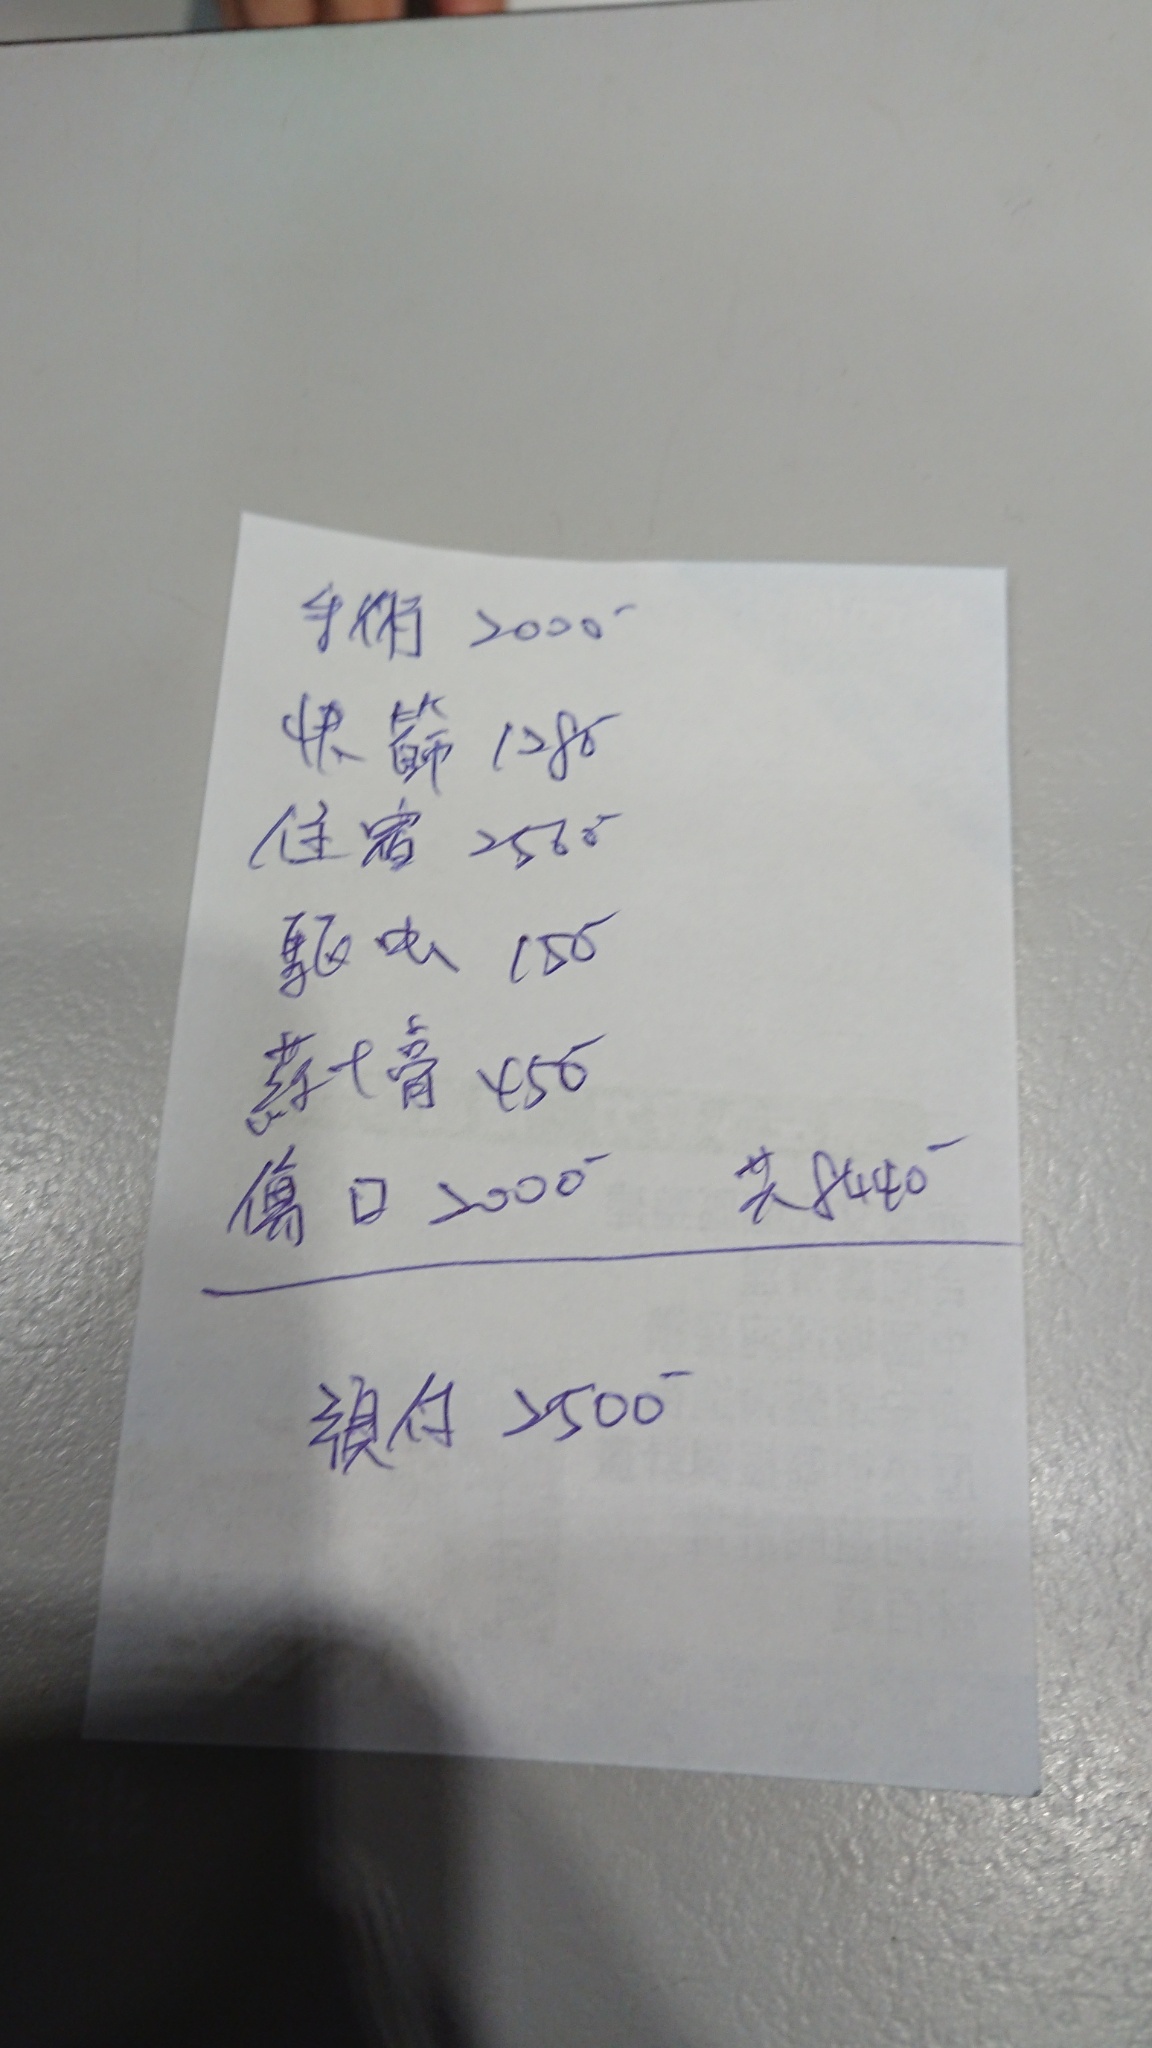 手術 2000-
快篩 1280-
住宿 2560-
驅虫 150-
藥+膏 450-
傷口 2000- 共8440-
預付 2500-